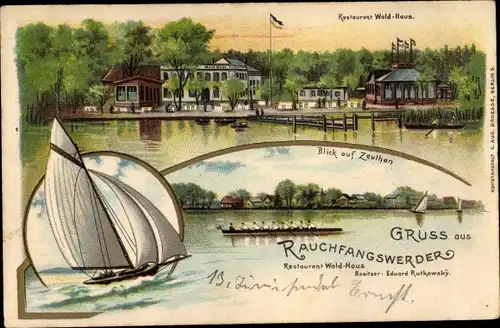 Restaurant Wald-Haus.
Blick auf Zeuthen
GRUSS aus
RAUCHFANGSWERDER
Restaurant Wald-Haus
Besitzer: Eduard Rutkowsky.
13.
KUNSTANSTALT C. AUG. ROSSE, BERLIN S.